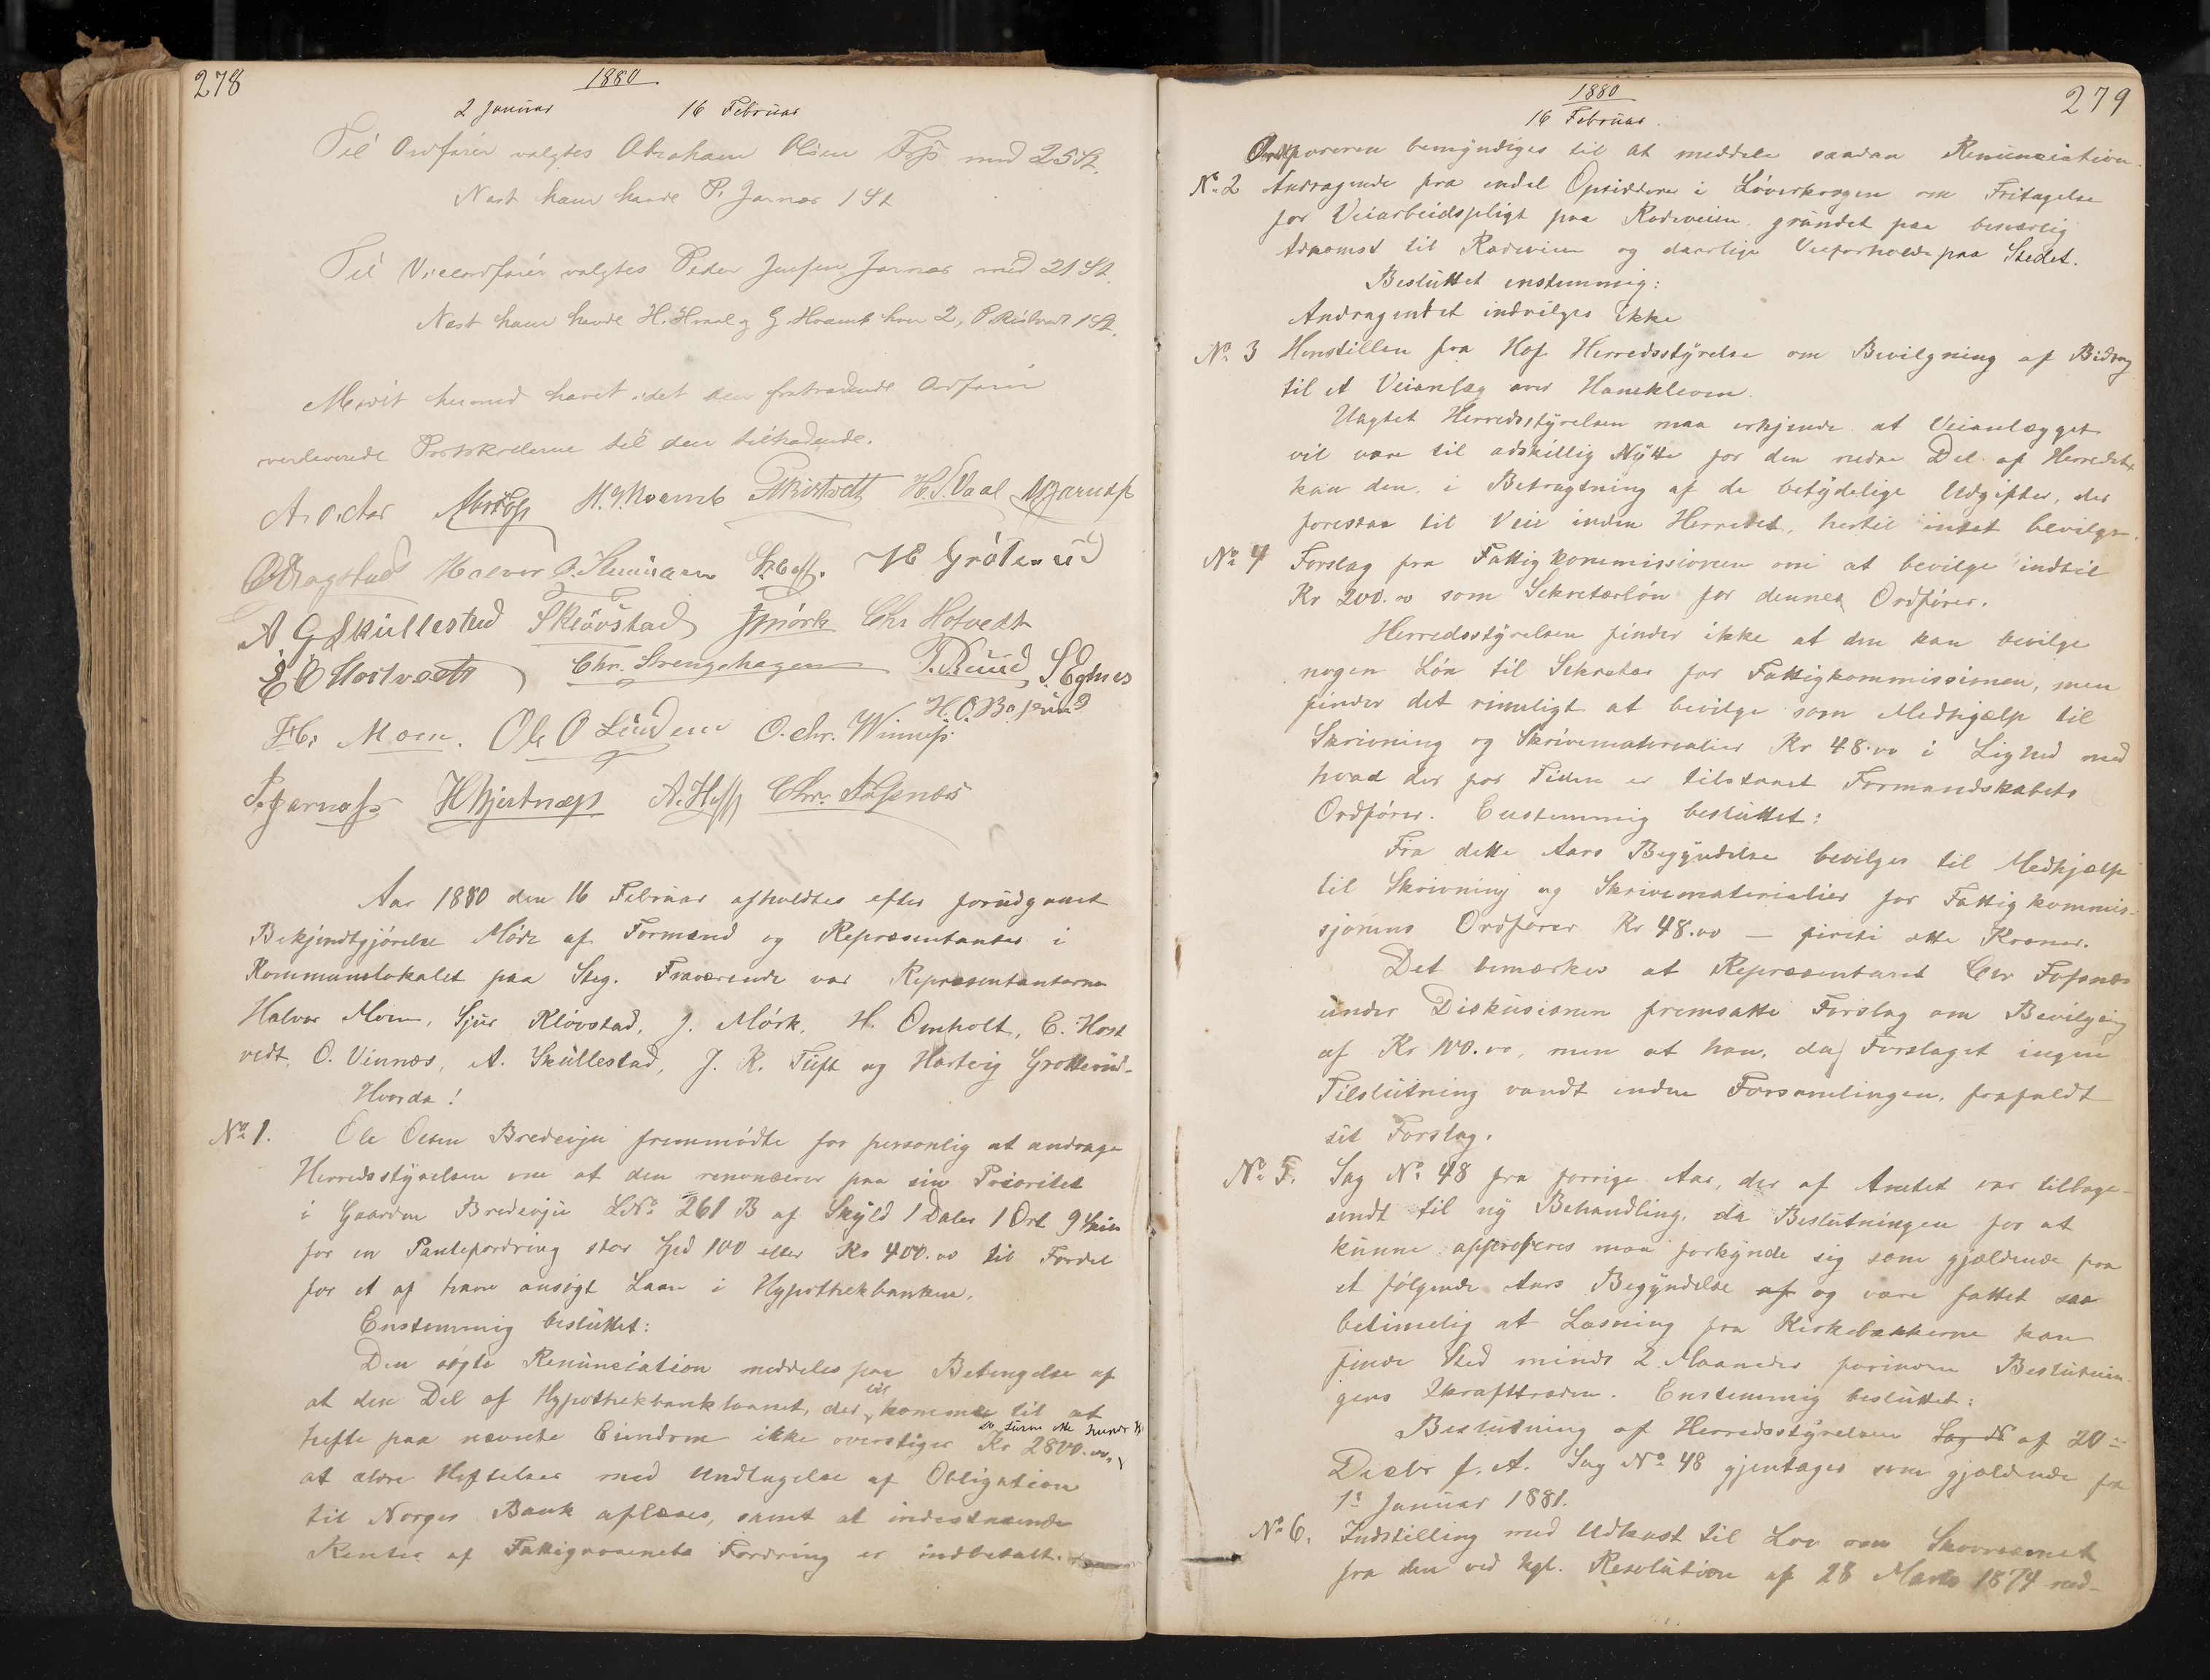 278
1880
2 Januar 16 Februar
Til Ordfører valgtes Abraham Olsen Foss med 25 St.
Næst ham havde P. Jarnæs 1 St
Til Viceordfører valgtes Peder Jarnæs med 21 St.
Næst ham havde H. Hvaal og G. Hvamb hver 2, P. Ristvedt 1 St.
Mødet hermed hævet idet den fratrædende Ordfører
overleverede Protokollerne til den tiltrædende.
H. Hvamb P. Ristvedt
H Gröterud
A G Skullestad S Kløvstad J Mørk Chr Hotvedt
E O Hostvedt Chr. Strengehagen P. Ruud S. Egnes
H. Moen. Ole O Linden O. Chr. Winnes. H. O. Bojerud
P. Jarnæss H Hjertnæss A. Hoff Chr. Fossnæs
Aar 1880 den 16 Februar afholdtes efter forudgaaet
Bekjendtgjørelse Møde af Formænd og Repræsentanter i
Kommunelokalet paa Steg. Fraværende var Repræsentanterne
Halvor Moen, Sjur Kløvstad, J. Mørk, H. Omholt, E. Host
vedt, O. Vinnæs, A. Skullestad, J. K. Tuft og Hartvig Grotterud.
Hvorda!
No 1. Ole Olsen Bredevju fremmødte for personlig at andrage
Herredsstyrelsen om at den renoncerer paa sin Prioritet
i Gaarden Bredevju LNo 261 B af Skyld 1 Daler 1 Ort 9 Skill
for en Pantefordring stor Spd 100 eller Kr 400.00 til Fordel
for et af ham ansøgt Laan i Hypothekbanken.
Enstemmig besluttet:
Den søgte Renunciation meddeles paa Betingelse af
at den Del af Hypothekbanklaanet, der vil komme til at
hefte paa nævnte Eiendom ikke overstiger Kr 2800.00, to tusen otte hundr Kr
at ældre Heftelser med Undtagelse af Obligation
til Norges Bank aflæses, samt at indestaaende
Renter af Fattigvæsenets Fordring er indbetalt.
279
1880
16 Februar.
Ordføreren bemyndiges til at meddele saadan Renunciation.
No 2 Andragende fra endel Opsiddere i Løverkrogen om Fritagelse
for Veiarbeidspligt paa Rodeveien grundet paa besværlig
Adkomst til Rodeveien og daarlige Veiforholde paa Stedet.
Besluttet enstemmig:
Andragendet indvilges ikke
No 3 Henstillen fra Hof Herredsstyrelse om Bevilgning af Bidrag
til et Veianlæg over Hanekleven.
Uagtet Herredsstyrelsen maa erkjende at Veianlægget
vil være til adskillig Nytte for den nedre Del af Herredet
kan den, i Betragtning af de betydelige Udgifter, der
forestaa til Veie inden Herredet, hertil intet bevilge.
No 4 Forslag fra Fattigkommissionen om at bevilge indtil
Kr 200.00 som Sekretærløn for dennes Ordfører.
Herredsstyrelsen finder ikke at den kan bevilge
nogen Løn til Sekretær for Fattigkommissionen, men
finder det rimeligt at bevilge som Medhjælp til
Skrivning og Skrivematerialier Kr 48.00 i Lighed med
hvad der for Tiden er tilstaaet Formandskabets
Ordfører. Enstemmig besluttet:
Fra dette Aars Begyndelse bevilges til Medhjælp
til Skrivning og Skrivematerialier for Fattigkommis-
sjonens Ordfører Kr 48.00 — fireti otte Kroner.
Det bemærkes at Repræsentant Chr Fossnæs
under Diskusionen fremsatte Forslag om Bevilgning
af Kr 100.00, men at han, da Forslaget ingen
Tilslutning vandt inden Forsamlingen, frafaldt
sit Forslag.
No 5. Sag No 48 fra forrige Aar, der af Amtet var tilbage-
sendt til ny Behandling, da Beslutningen for at
kunne approberes maa forkynde sig som gjældende fra
et følgende Aars Begyndelse af og være fattet saa
betimelig at Læsning fra Kirkebakkerne kan
finde Sted mindst 2 Maaneder forinden Beslutnin-
gens Ikrafttræden. Enstemmig besluttet:
Beslutning af Herredsstyrelsen Sag N af 20de
Decbr f. A. Sag No 48 gjentages som gjældende fra
1ste Januar 1881.
No 6. Indstilling med Udkast til Lov om Skovvæsenet
fra den ved kgl. Resolution af 28 Marts 1874 ned-